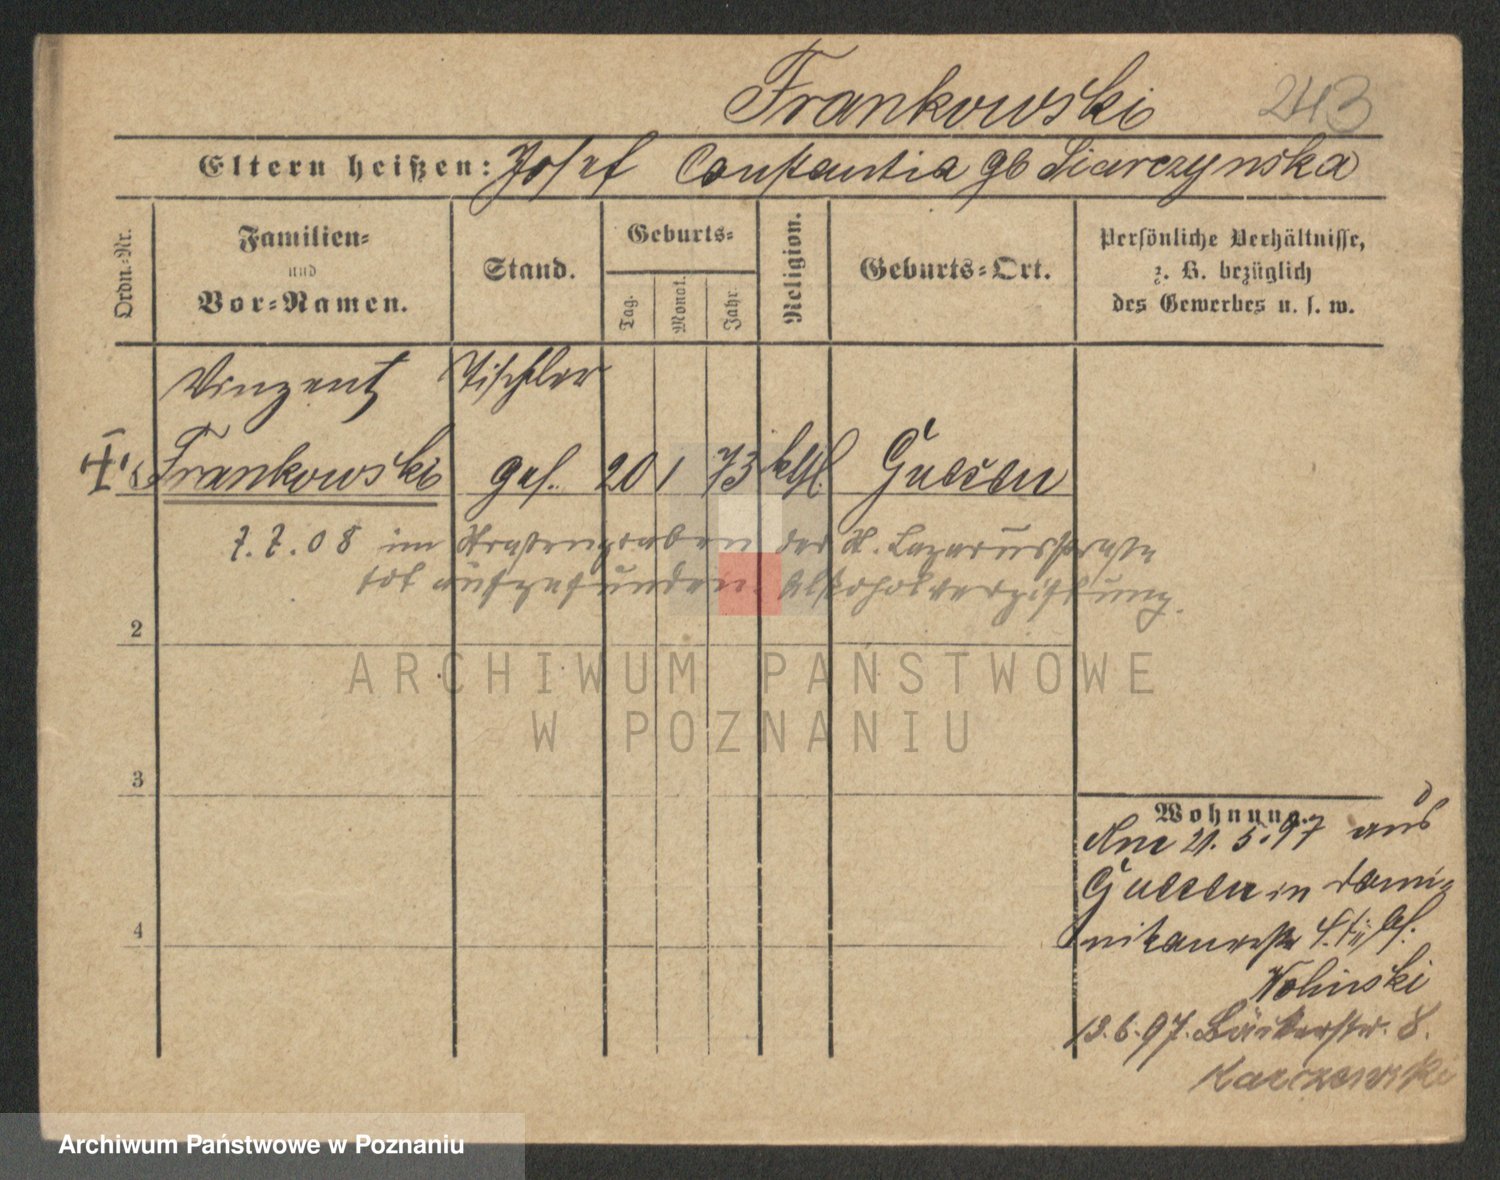 Frankowski 243
Eltern heißen: Josef Constantia gb Siarczynska
Ordn.-Nr.
Familien-
und
Vor-Namen.
Stand.
Geburts-
Tag.
Monat.
Jahr.
Religion.
Geburts-Ort.
Persönliche Verhältnisse,
z. B. bezüglich
des Gewerbes u. s. w.
Vinzent Tischler
Frankowski ges. 20 1 73 kth. Gnesen
7.7.08 im Straßengraben der St. Lazarusstraße
tot aufgefunden. Alkoholvergiftung.
2
3
4
Wohnung.
Am 21.5.97 aus
Gnesen in Domi-
nikanerstr
Wolinski
13.6.97. Bäckerstr. 8.
Karczewski
ARCHIWUM PAŃSTWOWE
W POZNANIU
Archiwum Państwowe w Poznaniu